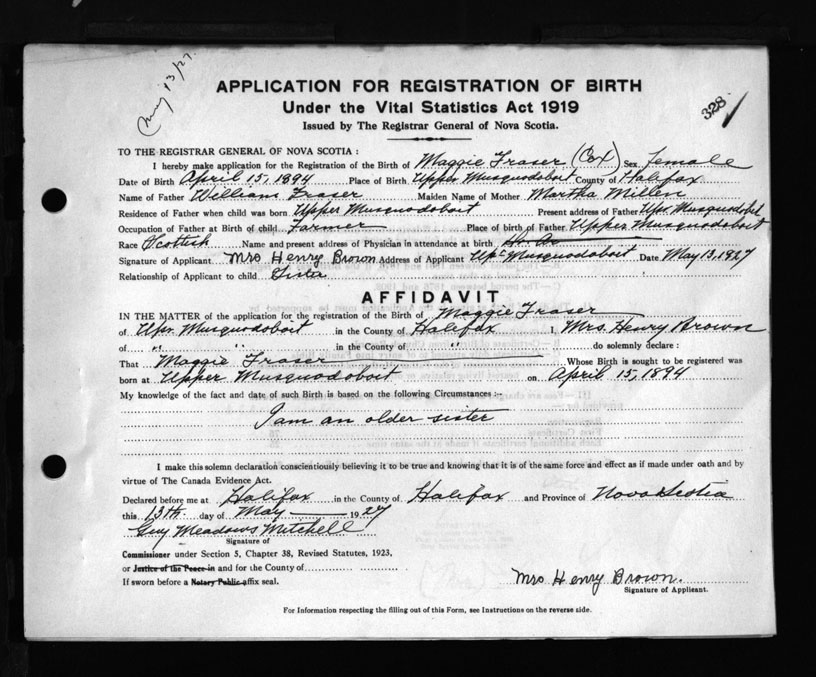 May 13/27.
328
APPLICATION FOR REGISTRATION OF BIRTH
Under the Vital Statistics Act 1919
Issued by The Registrar General of Nova Scotia.
TO THE REGISTRAR GENERAL OF NOVA SCOTIA:
I hereby make application for the Registration of the Birth of Maggie Fraser (Cox) Sex Female
Date of Birth April 15, 1894 Place of Birth Upper Musquodoboit County of Halifax
Name of Father William Fraser Maiden Name of Mother Martha Millen
Residence of Father when child was born Upper Musquodoboit Present address of Father Upr Musquodobt
Occupation of Father at Birth of child Farmer Place of birth of Father Upper Musquodoboit
Race Scottish Name and present address of Physician in attendance at birth
Signature of Applicant Mrs Henry Brown Address of Applicant Upr Musquodoboit Date May 13, 1927
Relationship of Applicant to child Sister
AFFIDAVIT
IN THE MATTER of the application for the registration of the Birth of Maggie Fraser
of Upr. Musquodoboit in the County of Halifax I, Mrs. Henry Brown
of " " in the County of " do solemnly declare:
That Maggie Fraser Whose Birth is sought to be registered was
born at Upper Musquodoboit on April 15, 1894
My knowledge of the fact and date of such Birth is based on the following Circumstances:-
I am an older sister
I make this solemn declaration conscientiously believing it to be true and knowing that it is of the same force and effect as if made under oath and by
virtue of The Canada Evidence Act.
Declared before me at Halifax in the County of Halifax and Province of Nova Scotia
this 13th day of May 1927
Guy Meadows Mitchell
Signature of
Commissioner under Section 5, Chapter 38, Revised Statutes, 1923,
or Justice of the Peace in and for the County of
If sworn before a Notary Public affix seal.
Mrs Henry Brown.
Signature of Applicant.
For Information respecting the filling out of this Form, see Instructions on the reverse side.